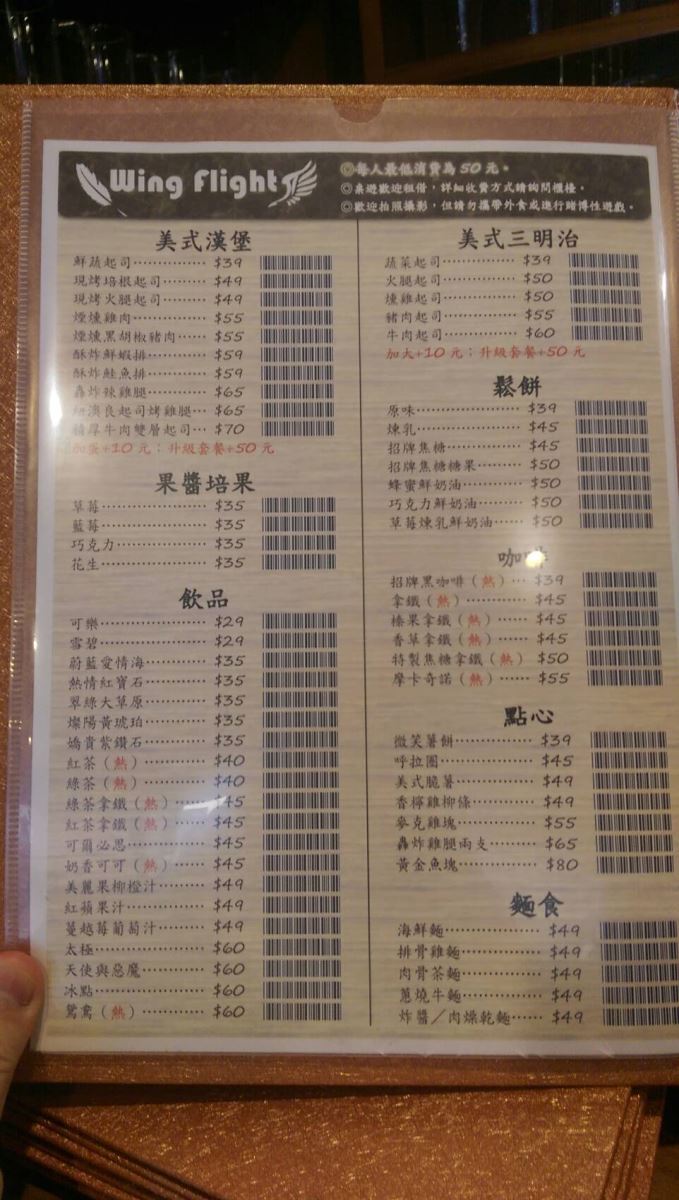 Wing Flight
◎每人最低消費為 50 元。
◎桌遊歡迎租借，詳細收費方式請詢問櫃檯。
◎歡迎拍照攝影，但請勿攜帶外食或進行賭博性遊戲。
美式漢堡
鮮蔬起司 $39
現烤培根起司 $49
現烤火腿起司 $49
煙燻雞肉 $55
煙燻黑胡椒豬肉 $55
酥炸鮮蝦排 $59
酥炸鮭魚排 $59
轟炸辣雞腿 $65
紐澳良起司烤雞腿 $65
精厚牛肉雙層起司 $70
加蛋+10 元；升級套餐+50 元
果醬培果
草莓 $35
藍莓 $35
巧克力 $35
花生 $35
飲品
可樂 $29
雪碧 $29
蔚藍愛情海 $35
熱情紅寶石 $35
翠綠大草原 $35
燦陽黃琥珀 $35
嬌貴紫鑽石 $35
紅茶（熱） $40
綠茶（熱） $40
綠茶拿鐵（熱） $45
紅茶拿鐵（熱） $45
可爾必思 $45
奶香可可（熱） $45
美麗果柳橙汁 $49
紅蘋果汁 $49
蔓越莓葡萄汁 $49
太極 $60
天使與惡魔 $60
冰點 $60
鴛鴦（熱） $60
美式三明治
蔬菜起司 $39
火腿起司 $50
燻雞起司 $50
豬肉起司 $55
牛肉起司 $60
加大+10 元；升級套餐+50 元
鬆餅
原味 $39
煉乳 $45
招牌焦糖 $45
招牌焦糖糖果 $50
蜂蜜鮮奶油 $50
巧克力鮮奶油 $50
草莓煉乳鮮奶油 $50
咖啡
招牌黑咖啡（熱） $39
拿鐵（熱） $45
榛果拿鐵（熱） $45
香草拿鐵（熱） $45
特製焦糖拿鐵（熱） $50
摩卡奇諾（熱） $55
點心
微笑薯餅 $39
呼拉圈 $45
美式脆薯 $49
香檸雞柳條 $49
麥克雞塊 $55
轟炸雞腿兩支 $65
黃金魚塊 $80
麵食
海鮮麵 $49
排骨雞麵 $49
肉骨茶麵 $49
蔥燒牛麵 $49
炸醬／肉燥乾麵 $49